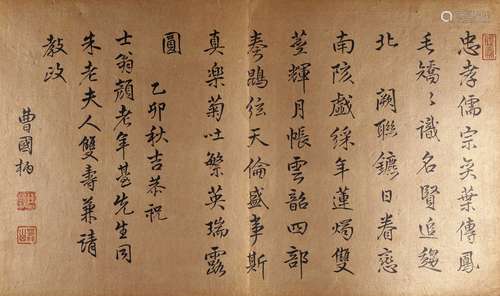 忠孝儒宗奕葉傳鳳
毛矯々識名賢追趨
北 闕聯鑣日眷戀
南陔戲綵年蓮燭雙
莖輝月帳雲韶四部
奏鵾絃天倫盛事斯
真樂菊吐繁英瑞露
圓
乙卯秋吉恭祝
士翁顏老年臺先生同
朱老夫人雙壽兼請
教政
曹國柄